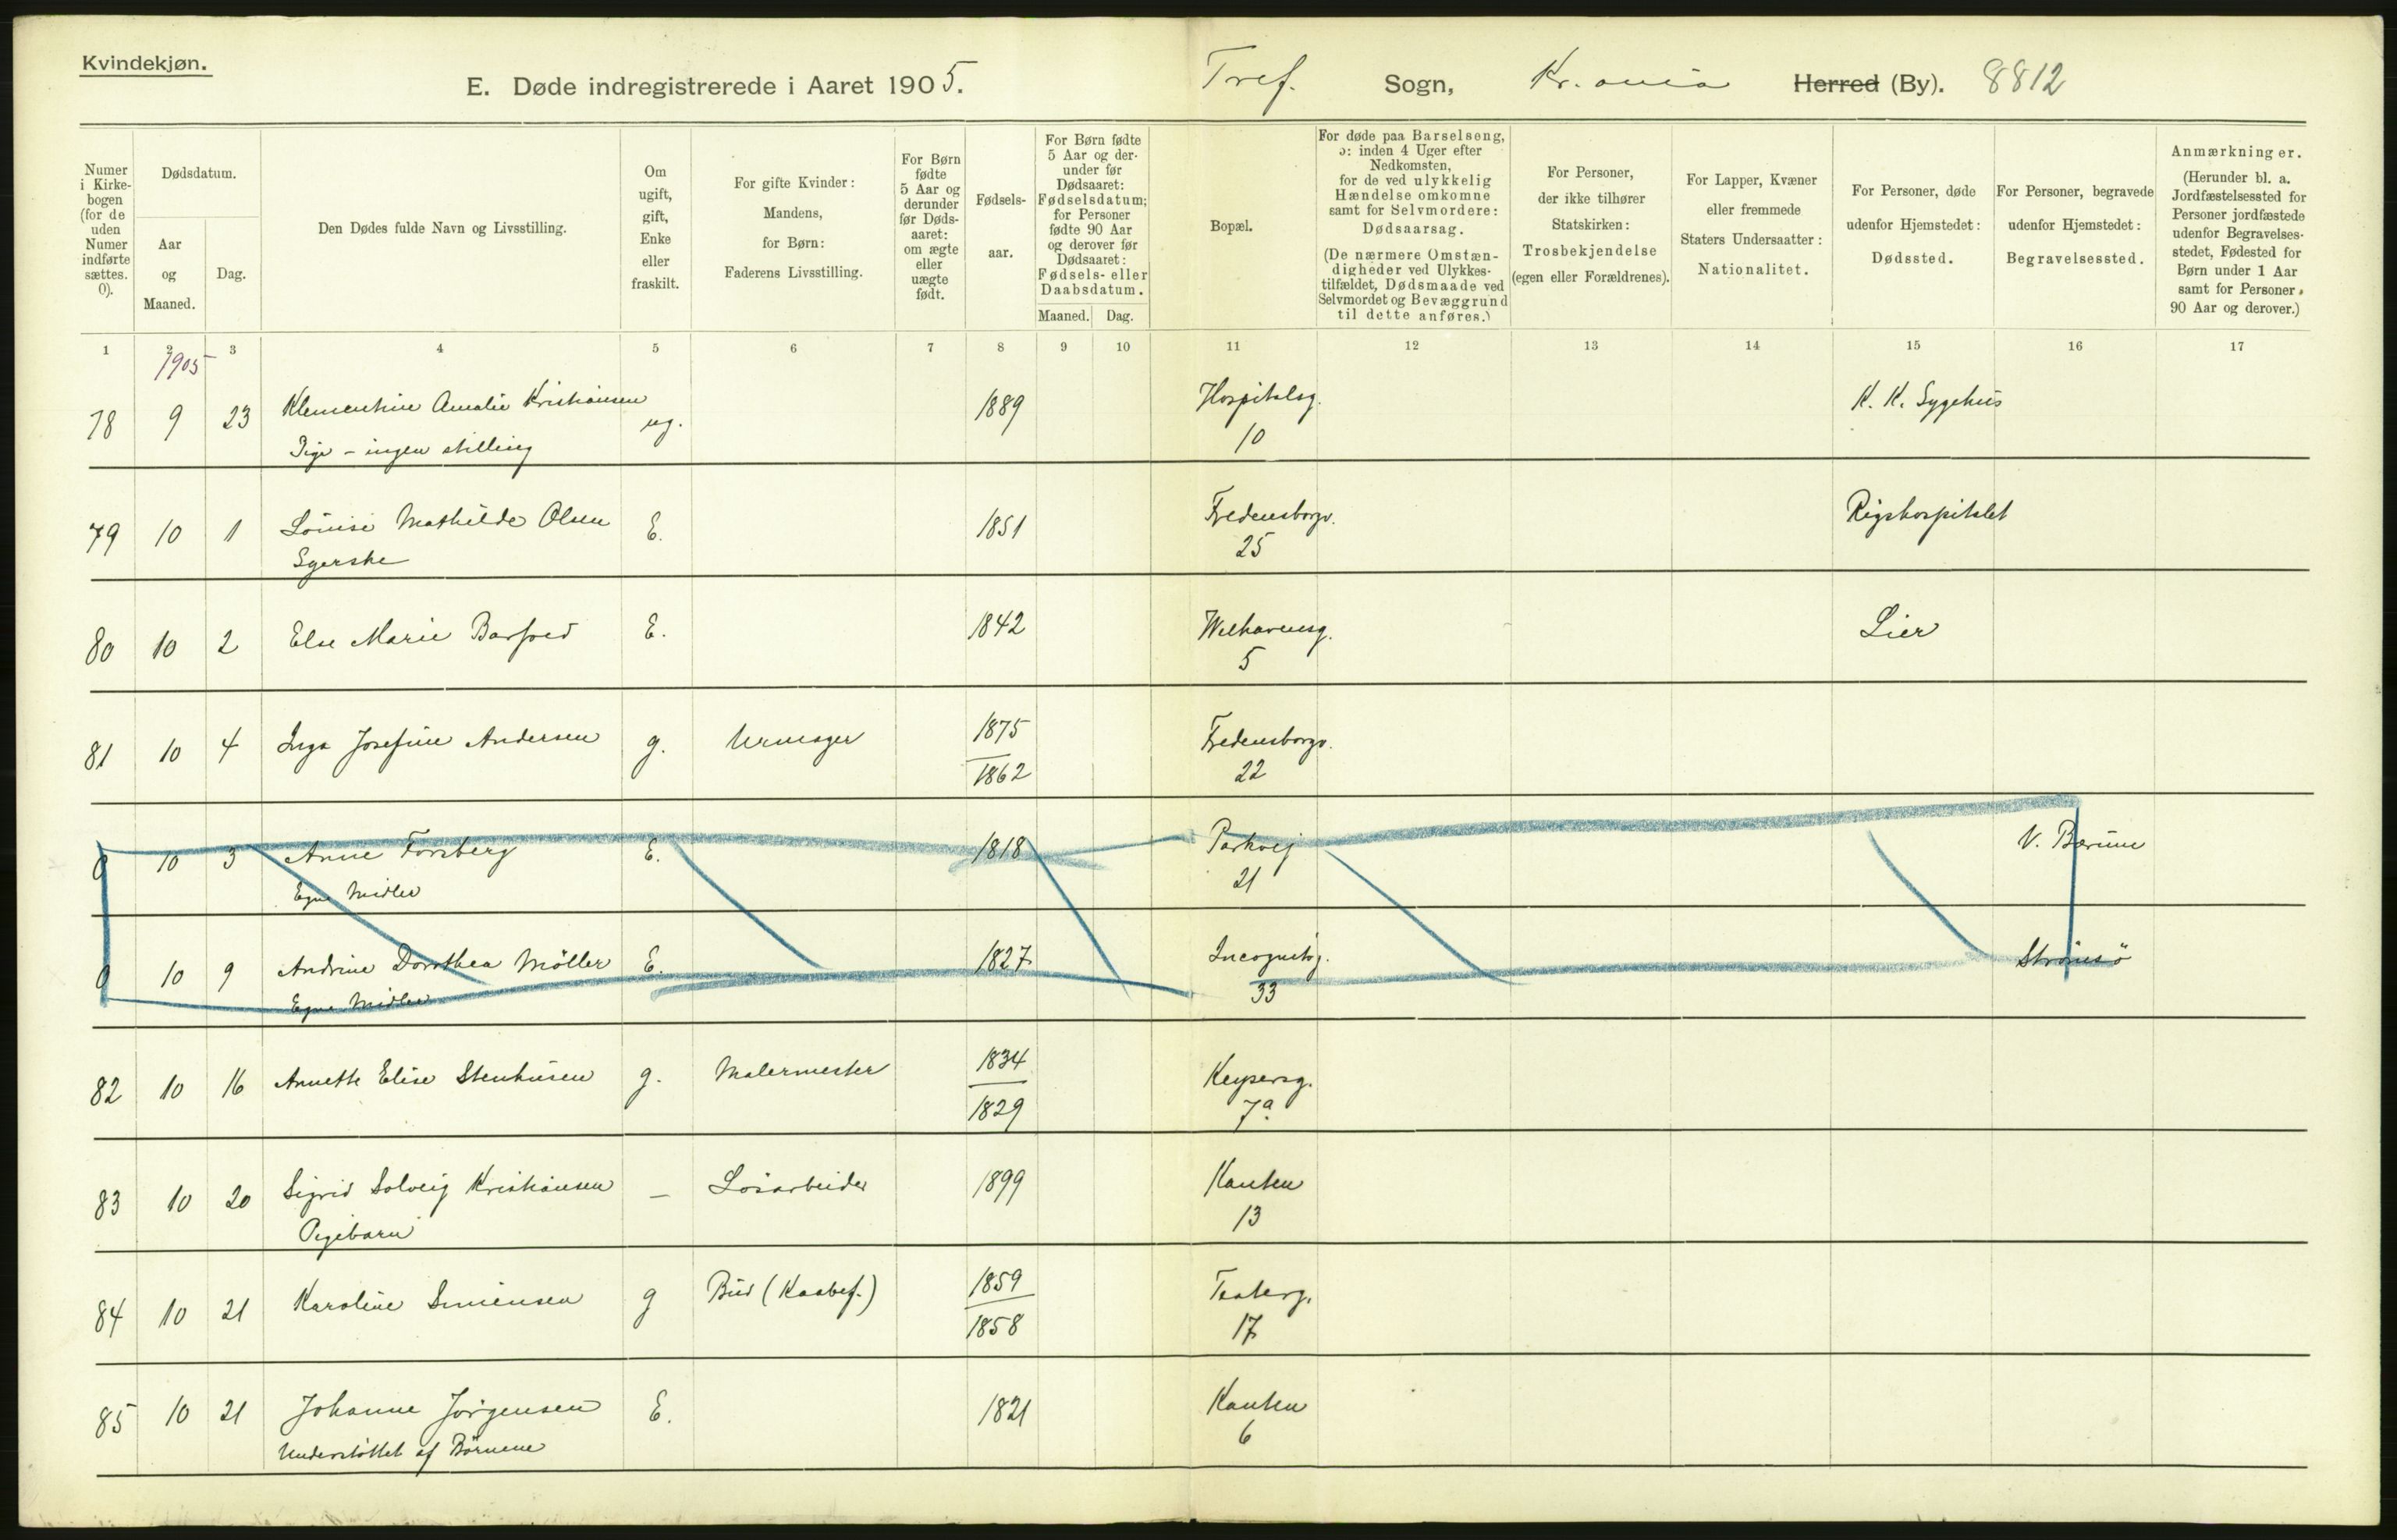 Kvindekjøn.
E. Døde indregistrerede i Aaret 1905. Tref. Sogn, Kr.ania Herred (By). 8812
Numer i Kirkebogen (for de uden Numer indførte sættes. 0).
Dødsdatum.
Aar og Maaned.
Dag.
Den Dødes fulde Navn og Livsstilling.
Om ugift, gift, Enke eller fraskilt.
For gifte Kvinder: Mandens, for Børn: Faderens Livsstilling.
For Børn fødte 5 Aar og derunder før Dødsaaret: om ægte eller uægte født.
Fødselsaar.
For Børn fødte 5 Aar og derunder før Dødsaaret: Fødselsdatum; for Personer fødte 90 Aar og derover før Dødsaaret: Fødsels- eller Daabsdatum.
Maaned. Dag.
Bopæl.
For døde paa Barselseng, ɔ: inden 4 Uger efter Nedkomsten, for de ved ulykkelig Hændelse omkomne samt for Selvmordere: Dødsaarsag.
(De nærmere Omstændigheder ved Ulykkestilfældet, Dødsmaade ved Selvmordet og Bevæggrund til dette anføres.)
For Personer, der ikke tilhører Statskirken: Trosbekjendelse (egen eller Forældrenes).
For Lapper, Kvæner eller fremmede Staters Undersaatter: Nationalitet.
For Personer, døde udenfor Hjemstedet: Dødssted.
For Personer, begravede udenfor Hjemstedet: Begravelsessted.
Anmærkninger.
(Herunder bl. a. Jordfæstelsessted for Personer jordfæstede udenfor Begravelsesstedet, Fødested for Børn under 1 Aar samt for Personer 90 Aar og derover.)
1 2 3 4 5 6 7 8 9 10 11 12 13 14 15 16 17
1905
78 9 23 Klementine Amalie Kristiansen ug. 1889 Hospitalsg. K. K. Sygehus
Pige - ingen stilling 10
79 10 1 Louise Mathilde Olsen E. 1851 Fredensborgv. Rigshospitalet
Syerske 25
80 10 2 Else Marie Barfoed E. 1842 Welhavensg. Lier
5
81 10 4 Inga Josefine Andersen g. Urmager 1875 Fredensborgv.
1862 22
0 10 3 Anne Forsberg E. 1818 Parkvej V. Bærum
Egne Midler 21
0 10 9 Andrine Dorothea Möller E. 1827 Incognitog. Strømsö
Egne Midler 33
82 10 16 Annette Elise Stenhusen g. Malermester 1834 Keysersg.
1829 7a
83 10 20 Sigrid Solveig Kristiansen — Løsarbeider 1899 Kanten
Pigebarn 13
84 10 21 Karoline Simensen g Bud (Kaabef.) 1859 Teaterg.
1858 17
85 10 21 Johanne Jørgensen E. 1821 Kanten
Understöttet af Börnene 6